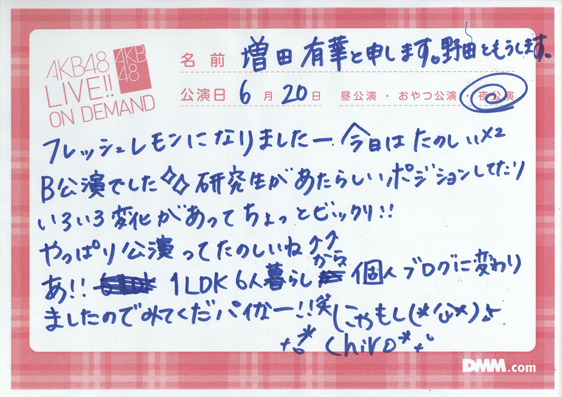 AKB48
LIVE!!
ON DEMAND
AKB
48
名前 増田有華と申します。野田ともうします。
公演日 6月20日 昼公演・おやつ公演・夜公演
フレッシュレモンになりましたー 今日はたのしいx2
B公演でした 研究生があたらしいポジションしてたり
いろいろ変化があってちょっとビックリ!!
やっぱり公演ってたのしいね↑↑
あ!! 1LDK6人暮らしから個人ブログに変わり
ましたのでみてくだパイかー!!笑
chiro
DMM.com